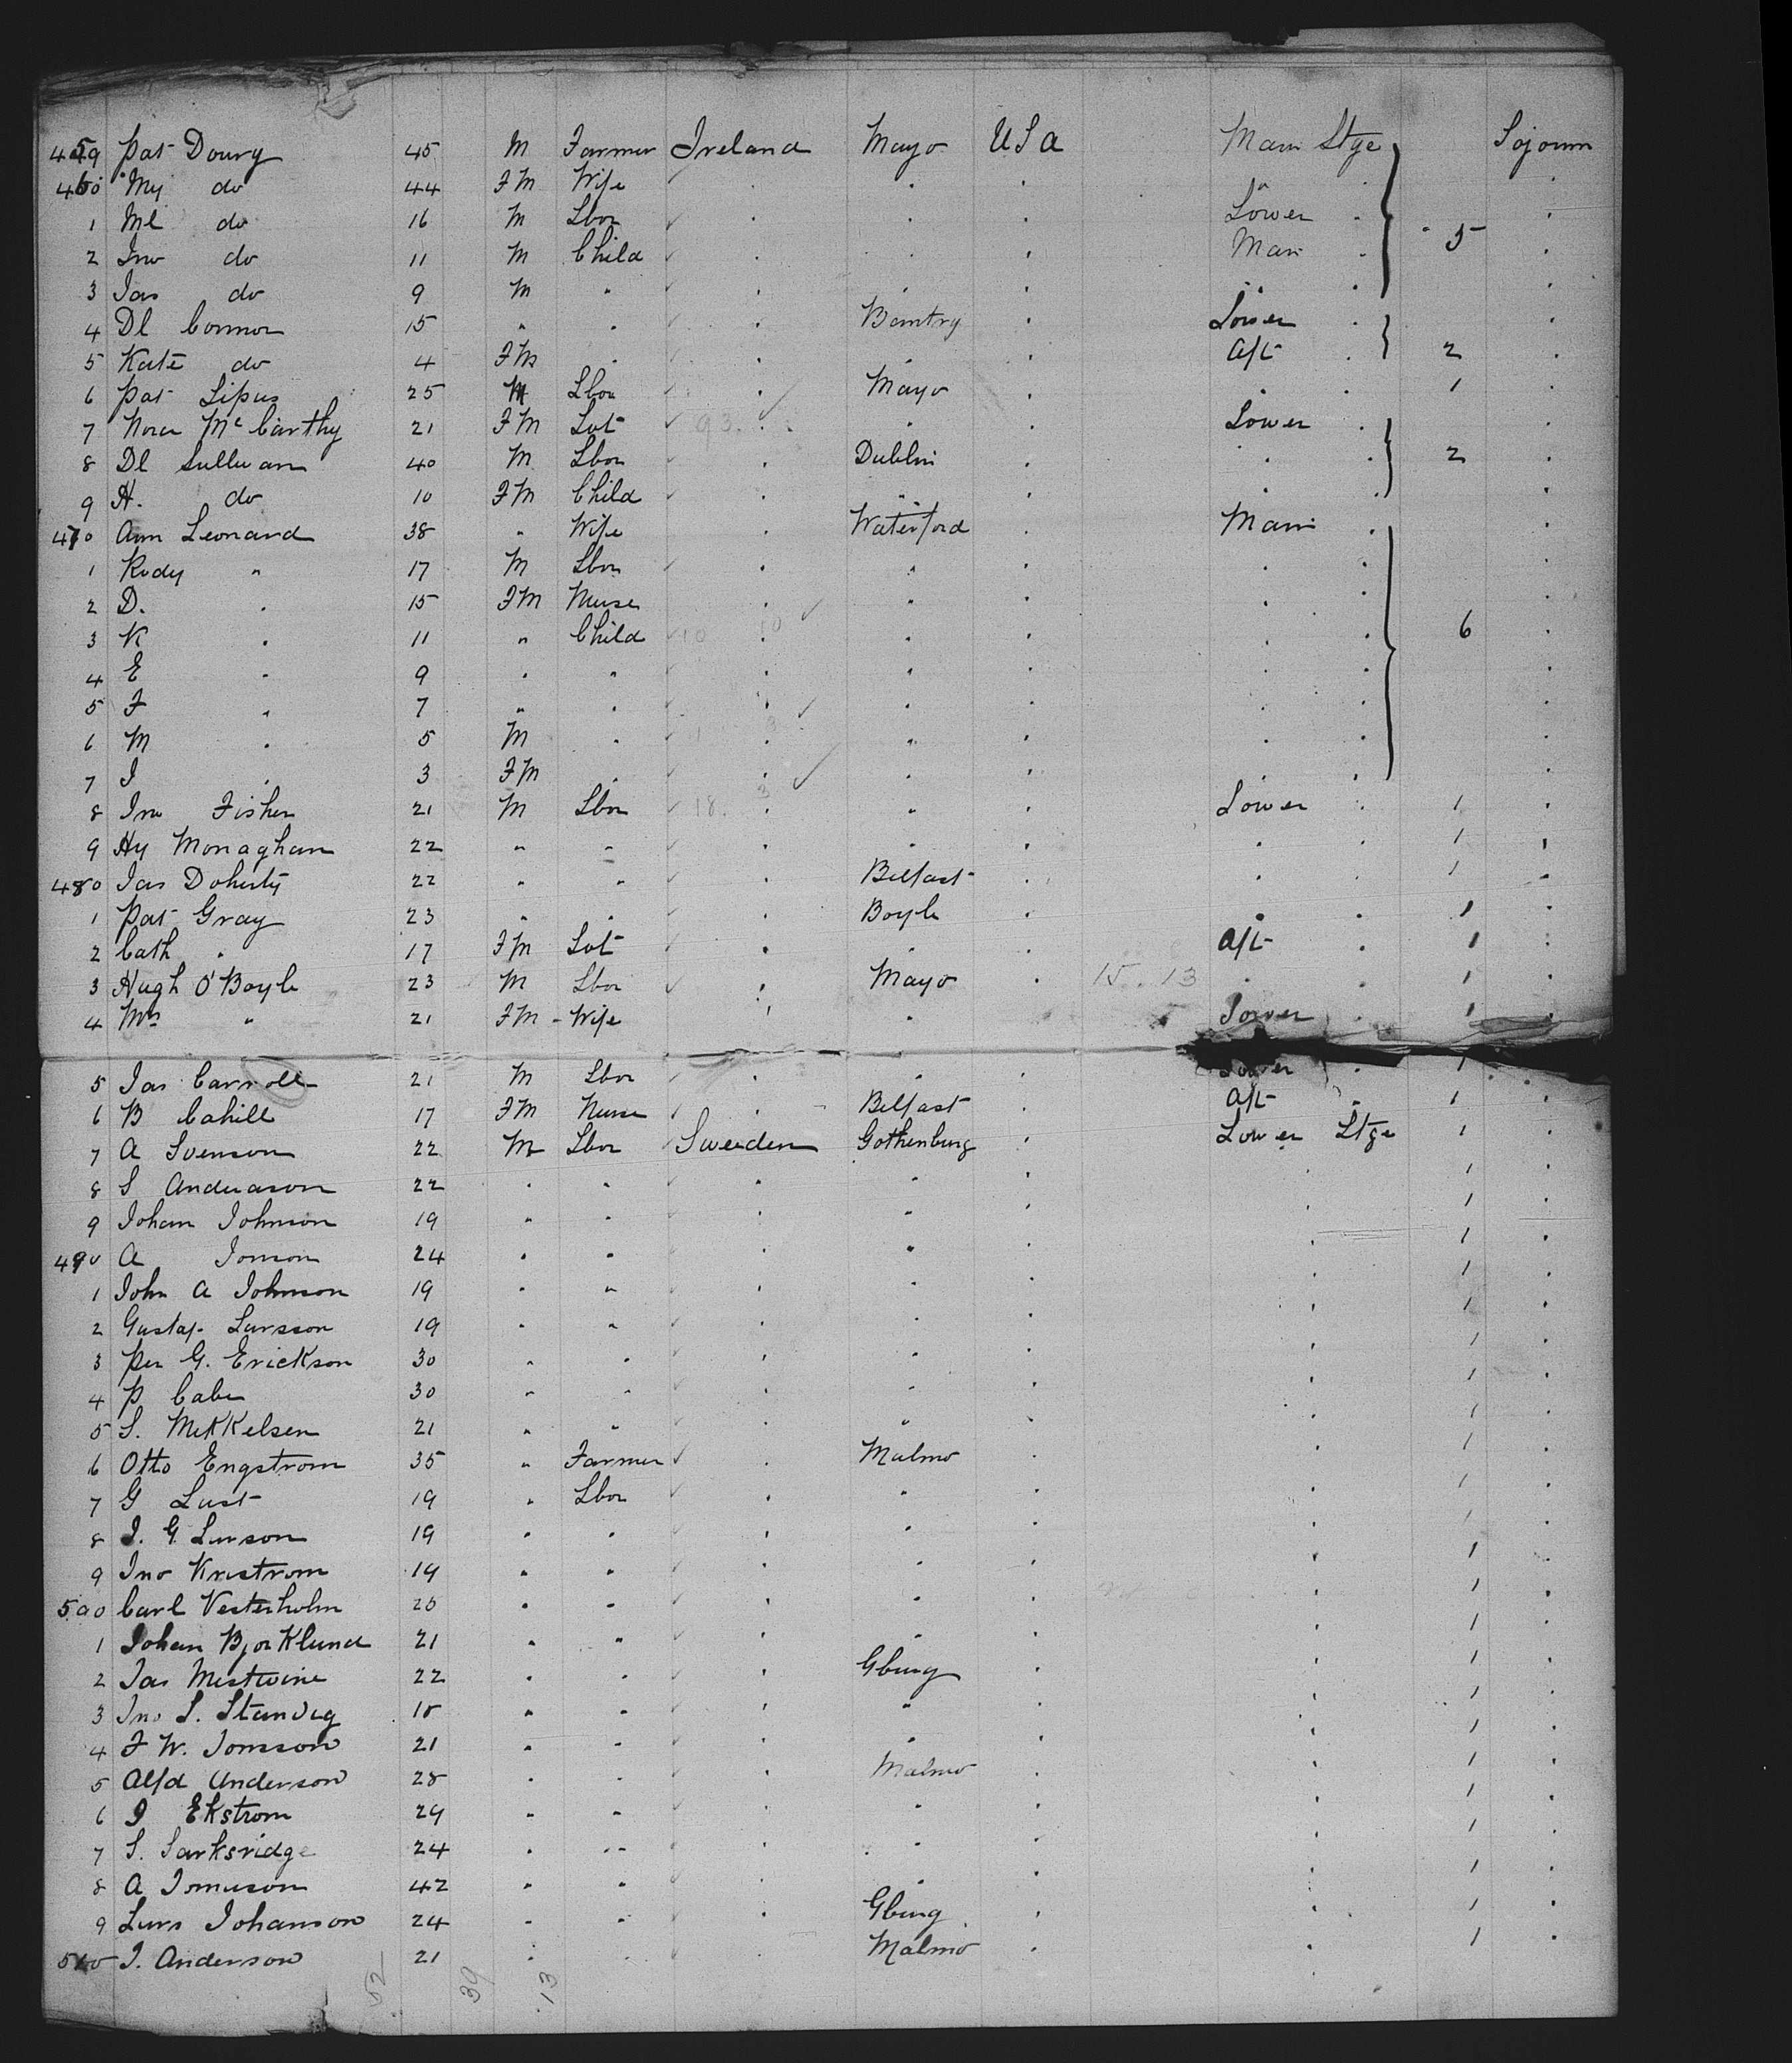 459 Pat Doury 45 M Farmer Ireland Mayo USA Main Stge Sojourn
460 My do 44 FM Wife " " " "
1 Ml do 16 M Lbor " " " Lower " 5 "
2 Jno do 11 M Child " " " Main " "
3 Jas do 9 M " " " " " " "
4 Dl Connor 15 " " " Bantry " Lower " "
5 Kate do 4 FM " " " " Aft " 2 "
6 Pat Lipus 25 M Lbor " Mayo " " " 1 "
7 Nora McCarthy 21 FM Svt " " " Lower " "
8 Dl Sullivan 40 M Lbor " Dublin " " " 2 "
9 H. do 10 FM Child " " " " " "
470 Ann Leonard 38 " Wife " Waterford " Main " "
1 Rody " 17 M Lbor " " " " " "
2 D. " 15 FM Nurse " " " " " "
3 K " 11 " Child " " " " " 6 "
4 E " 9 " " " " " " " "
5 F " 7 " " " " " " " "
6 M " 5 M " " " " " " "
7 J " 3 FM " " " " " " "
8 Jno Fisher 21 M Lbor " " " Lower " 1 "
9 Hy Monaghan 22 " " " " " " " 1 "
480 Jas Doherty 22 " " " Belfast " " " 1 "
1 Pat Gray 23 " " " Boyle " " " 1 "
2 Cath " 17 FM Svt " " " Aft " 1 "
3 Hugh O'Boyle 23 M Lbor " Mayo " 15.13 " " 1 "
4 Mrs " 21 FM - Wife " " " Lower " 1 "
5 Jas Carroll 21 M Lbor " " " Lower " 1 "
6 B Cahill 17 FM Nurse " Belfast " Aft " 1 "
7 A Svenson 22 M Lbor Sweden Gothenburg " Lower Stge 1 "
8 S Anderason 22 " " " " " " 1 "
9 Johan Johnson 19 " " " " " " 1 "
490 A Jonson 24 " " " " " " 1 "
1 John A Johnson 19 " " " " " " 1 "
2 Gustaf Larsson 19 " " " " " " 1 "
3 Per G. Erickson 30 " " " " " " 1 "
4 P Cabe 30 " " " " " " 1 "
5 S. Mekkelsen 21 " " " " " " 1 "
6 Otto Engstrom 35 " Farmer " Malmo " " 1 "
7 G Lust 19 " Lbor " " " " 1 "
8 J. G. Larson 19 " " " " " " 1 "
9 Jno Kristrom 19 " " " " " " 1 "
500 Carl Vesterholm 25 " " " " " " 1 "
1 Johan Bjorklund 21 " " " " " " 1 "
2 Jas Mestvine 22 " " " Gburg " " 1 "
3 Jno S. Standig 18 " " " " " " 1 "
4 F W. Jonsson 21 " " " " " " 1 "
5 Alfd Anderson 28 " " " Malmo " " 1 "
6 J Ekstrom 29 " " " " " " 1 "
7 S. Sarksridge 24 " " " " " " 1 "
8 A Jonuson 42 " " " " " " 1 "
9 Lars Johanson 24 " " " Gburg " " 1 "
510 J. Anderson 21 " " " Malmo " " 1 "
52 39 13